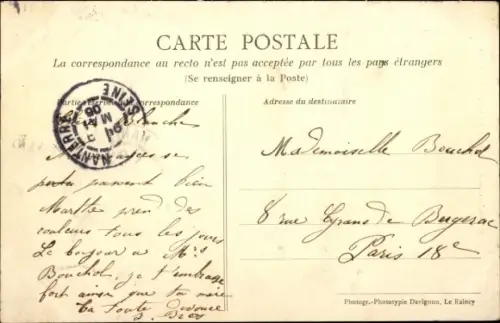 CARTE POSTALE
La correspondance au recto n'est pas acceptée par tous les pays étrangers
(Se renseigner à la Poste)
Partie réservée à la correspondance
Adresse du destinataire
NANTERRE
SEINE
Blanche
se
portent bien
Marthe prend des
couleurs tous les jours
Le bonjour à Mrs
Bouchol, je t'embrasse
fort ainsi que ta mère
Ta toute dévouée
Mademoiselle Bouchol
8 rue Cyrano de Bergerac
Paris 18e
Photogr.-Phototypie Davignon, Le Raincy